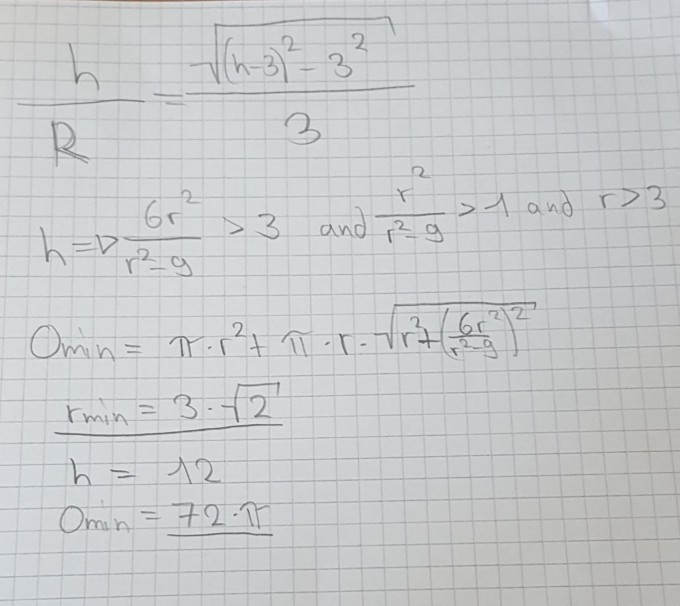 h/R = √((h-3)² - 3²)/3
h => 6r²/(r²-9) > 3 and r²/(r²-9) > 1 and r > 3
Omin = π·r² + π·r·√(r² + (6r²/(r²-9))²)
rmin = 3·√2
h = 12
Omin = 72·π